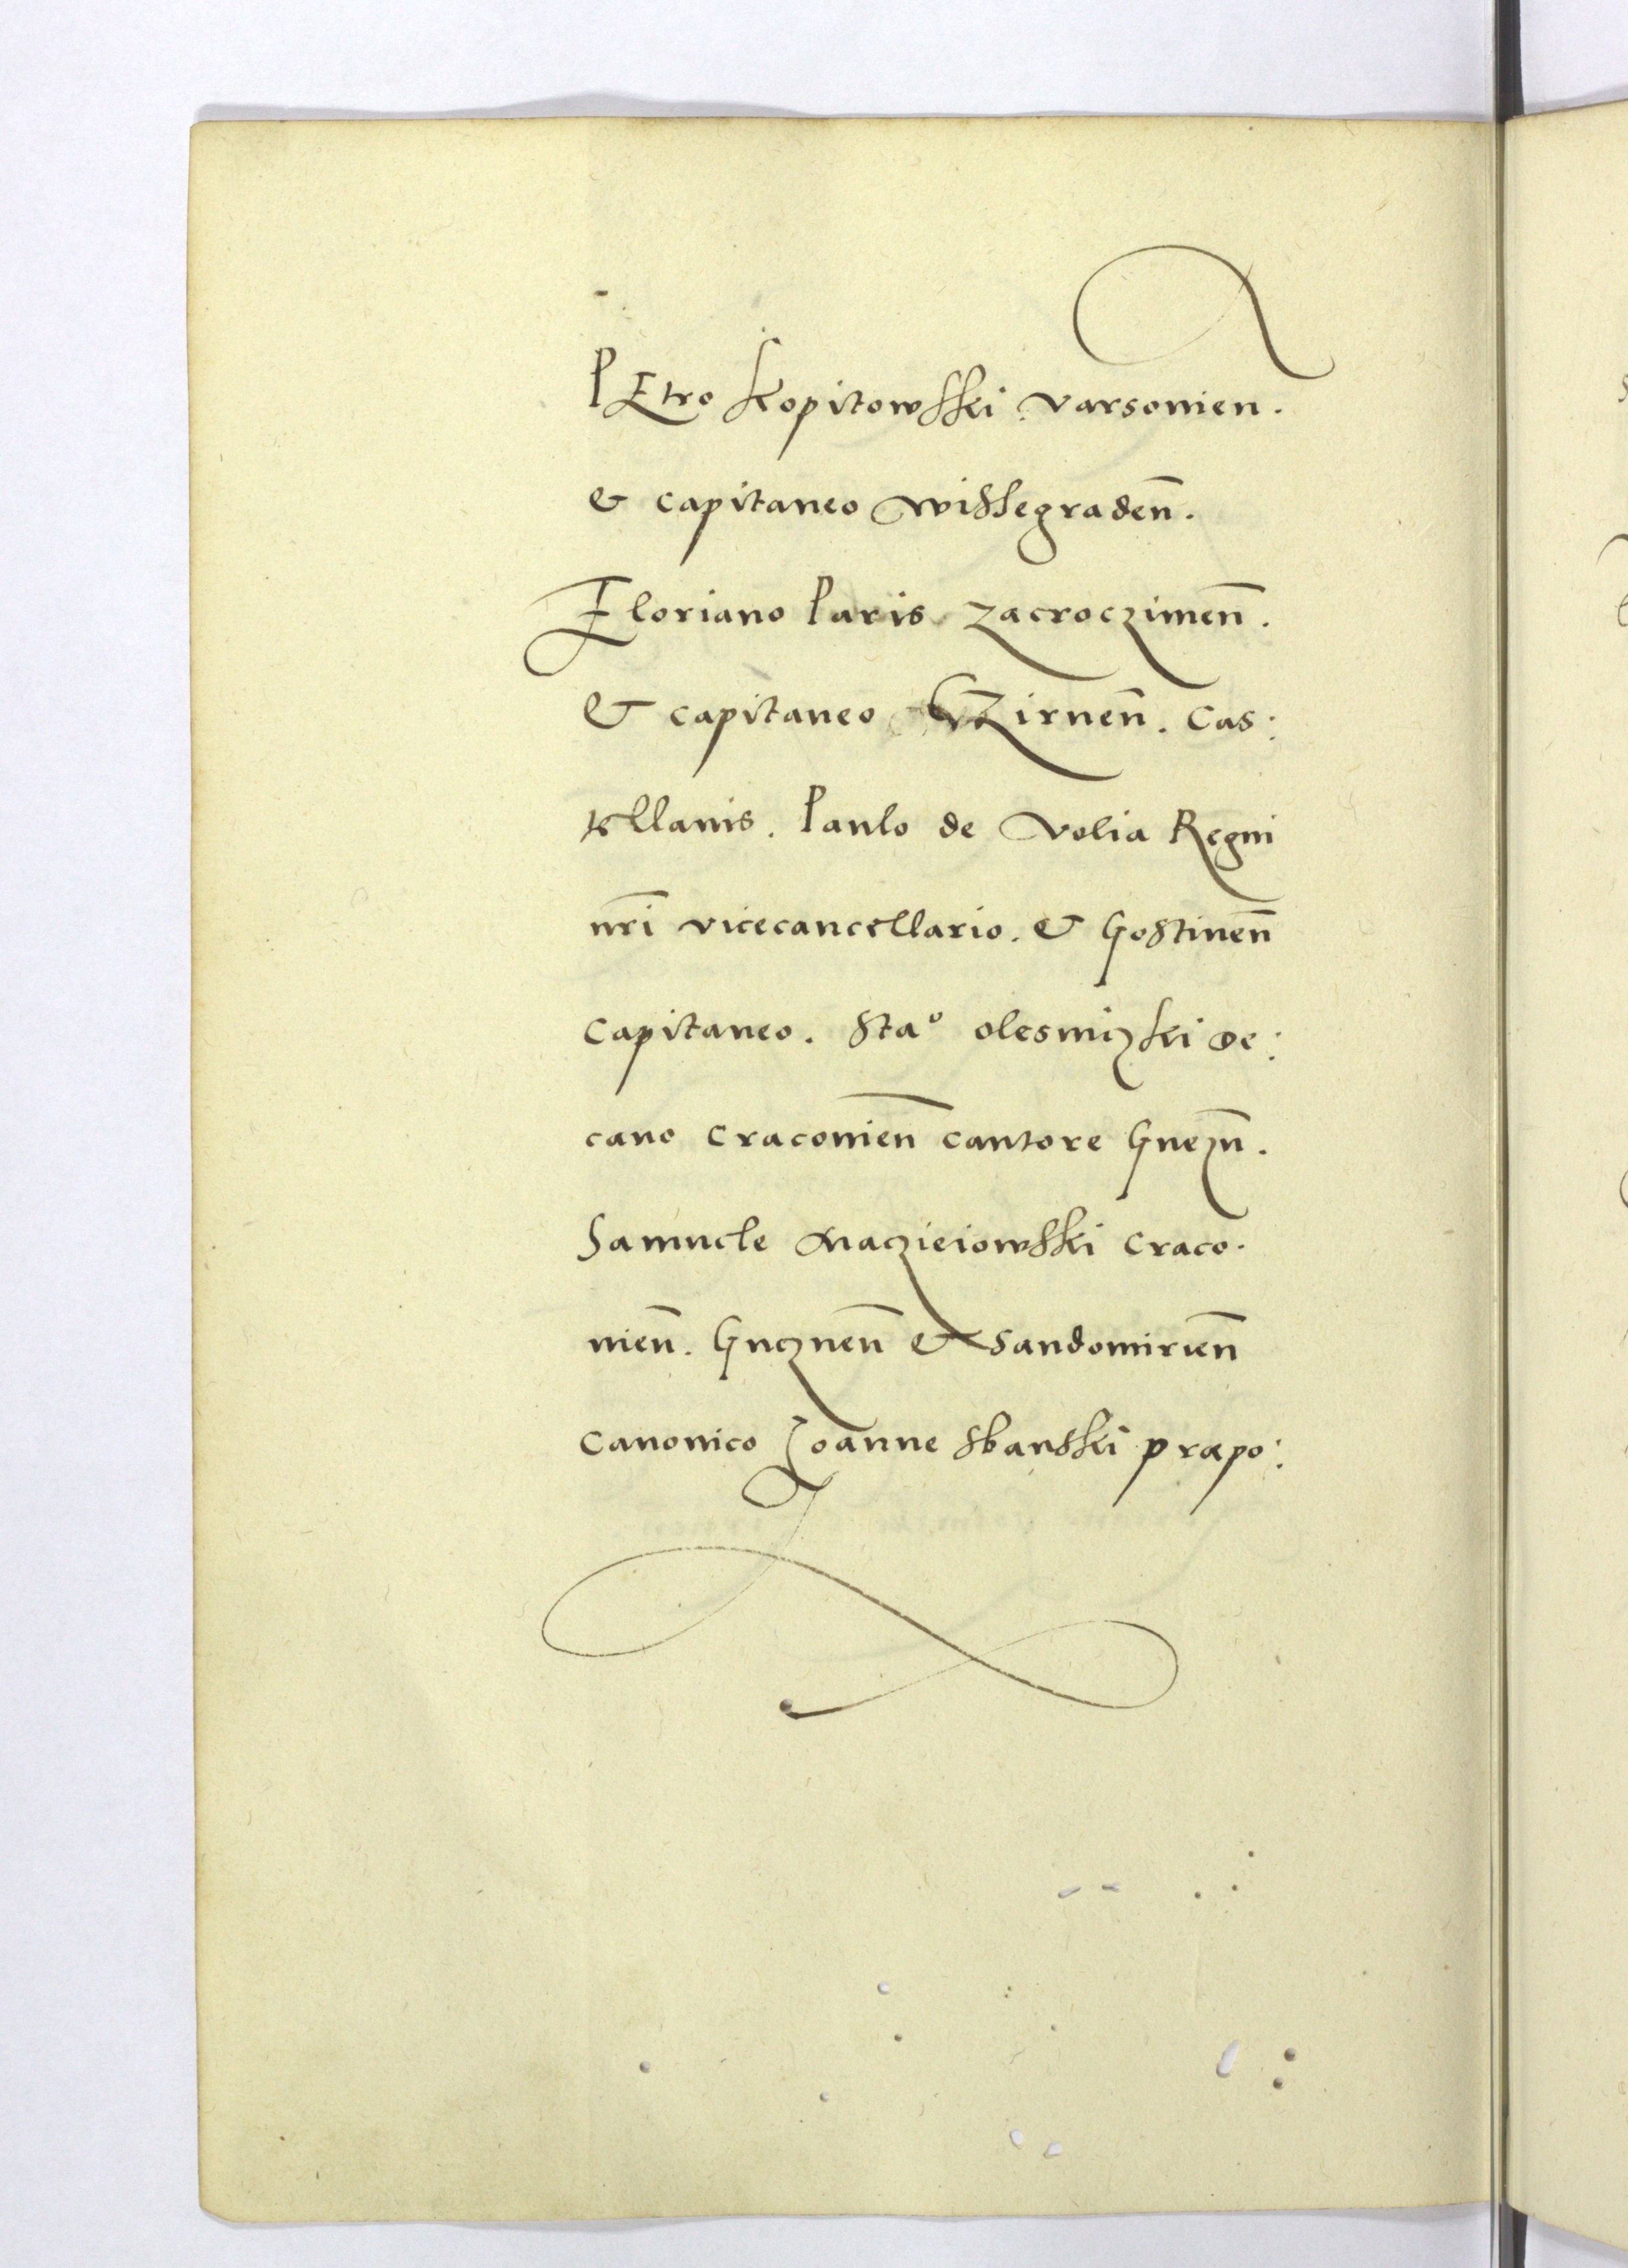 PEtro Kopitowski varsouien.
& capitaneo wissegradeñ.
Floriano Paris zacroczimeñ.
& capitaneo Czirneñ. Cas:
tellanis. Paulo de Volia Regni
nr̃i vicecancellario. & Gostineñ
capitaneo. Staº olesniczki De:
cano Cracouieñ cantore Gnezñ.
Samuele Maczieiowski Craco.
uieñ. Gnezneñ & Sandomirieñ
canonico Joanne Sbanski præpo: